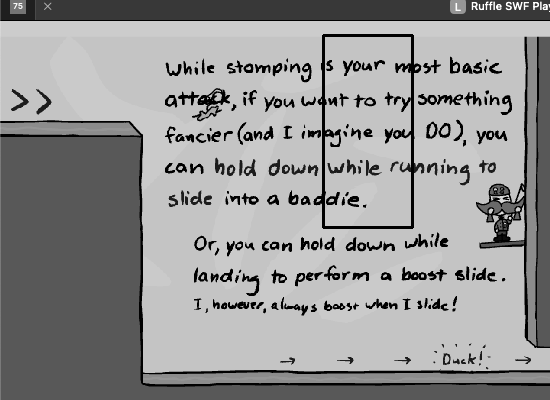 75
L Ruffle SWF Play
While stomping is your most basic
attack, if you want to try something
fancier (and I imagine you DO), you
can hold down while running to
slide into a baddie.
Or, you can hold down while
landing to perform a boost slide.
I, however, always boost when I slide!
Duck!